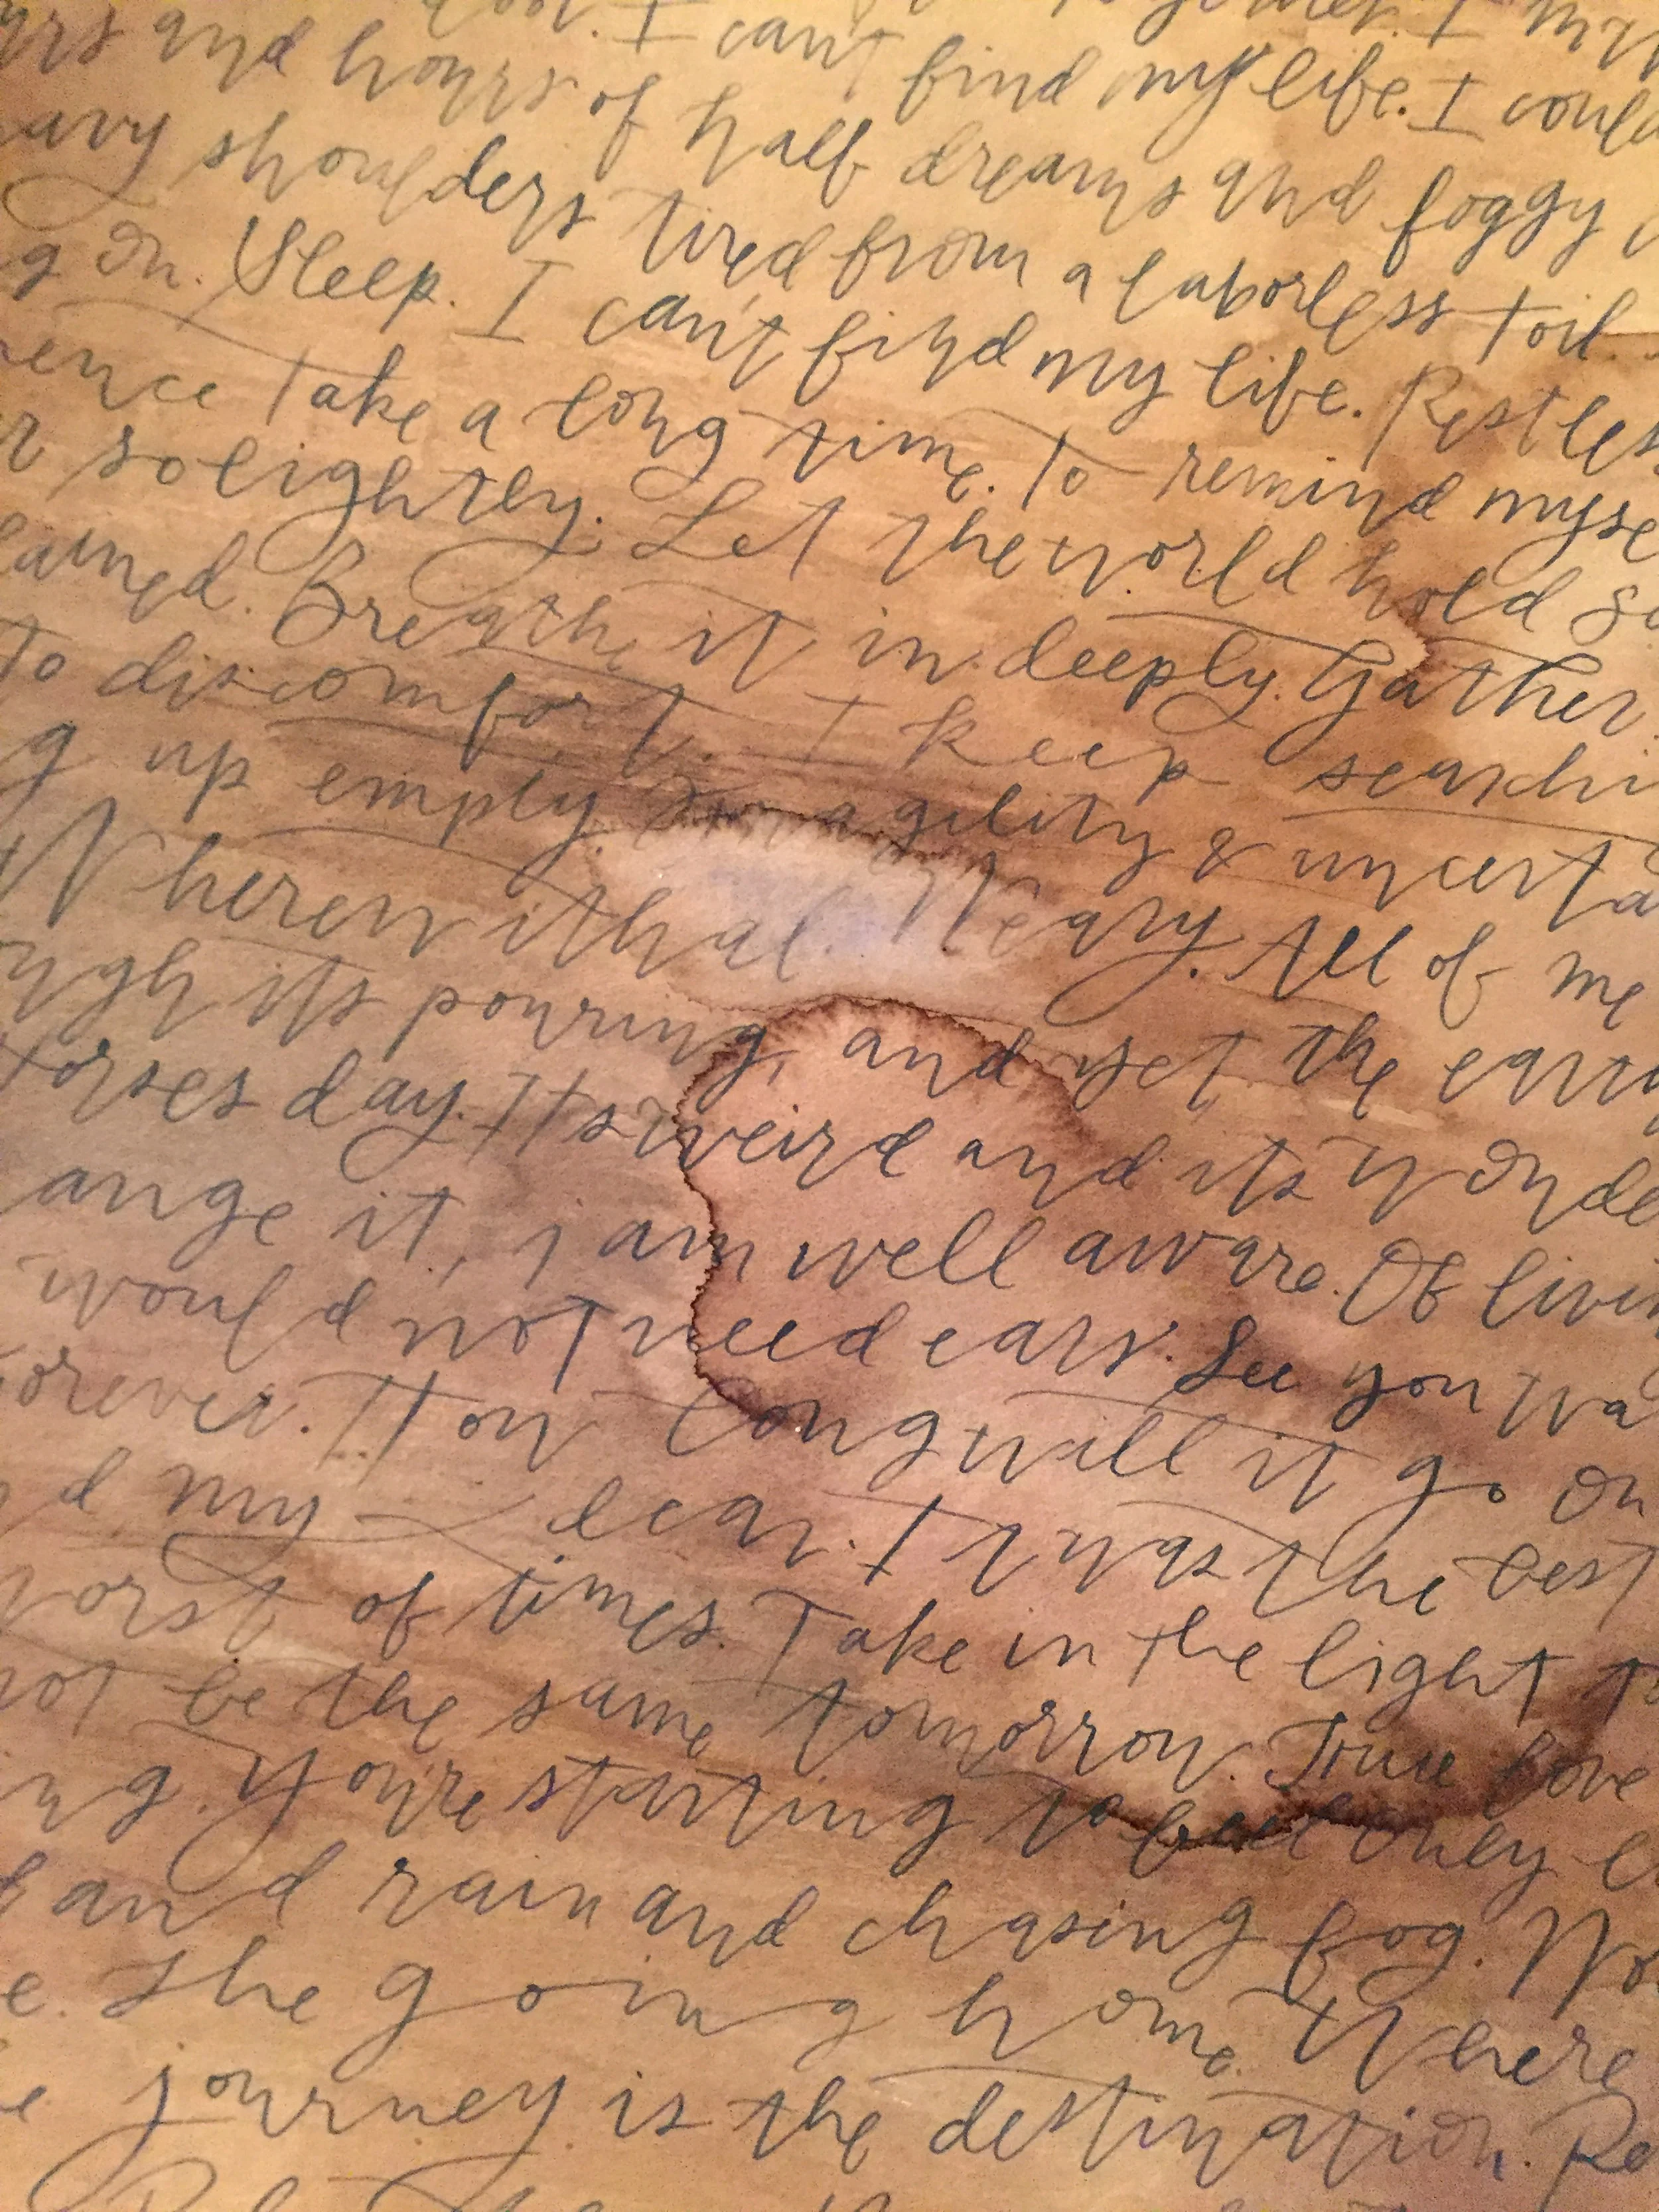 I can't find my life. I could
urs and hours of half dreams and foggy
avy shoulders tired from a laborless toil.
g on. Sleep. I can't find my life. Restles
ence take a long time. To remind myse
r so lightly. Let the world hold so
ained. Breathe it in deeply. Gather
to discomfort. I keep searchi
g up empty. Fragility & uncerta
Wherewithal. Weary. All of me
ough its pouring, and yet the
orses day. Its weird and its wonde
ange it, i am well aware. Of livin
would not need ears. See you wa
orever. How long will it go on
d my dear. It was the best
worst of times. Take in the light to
not be the same tomorrow. True love
ng. You're starting to feel only
d and rain and chasing fog. Wo
e. The going home. Where
e journey is the destination. Re